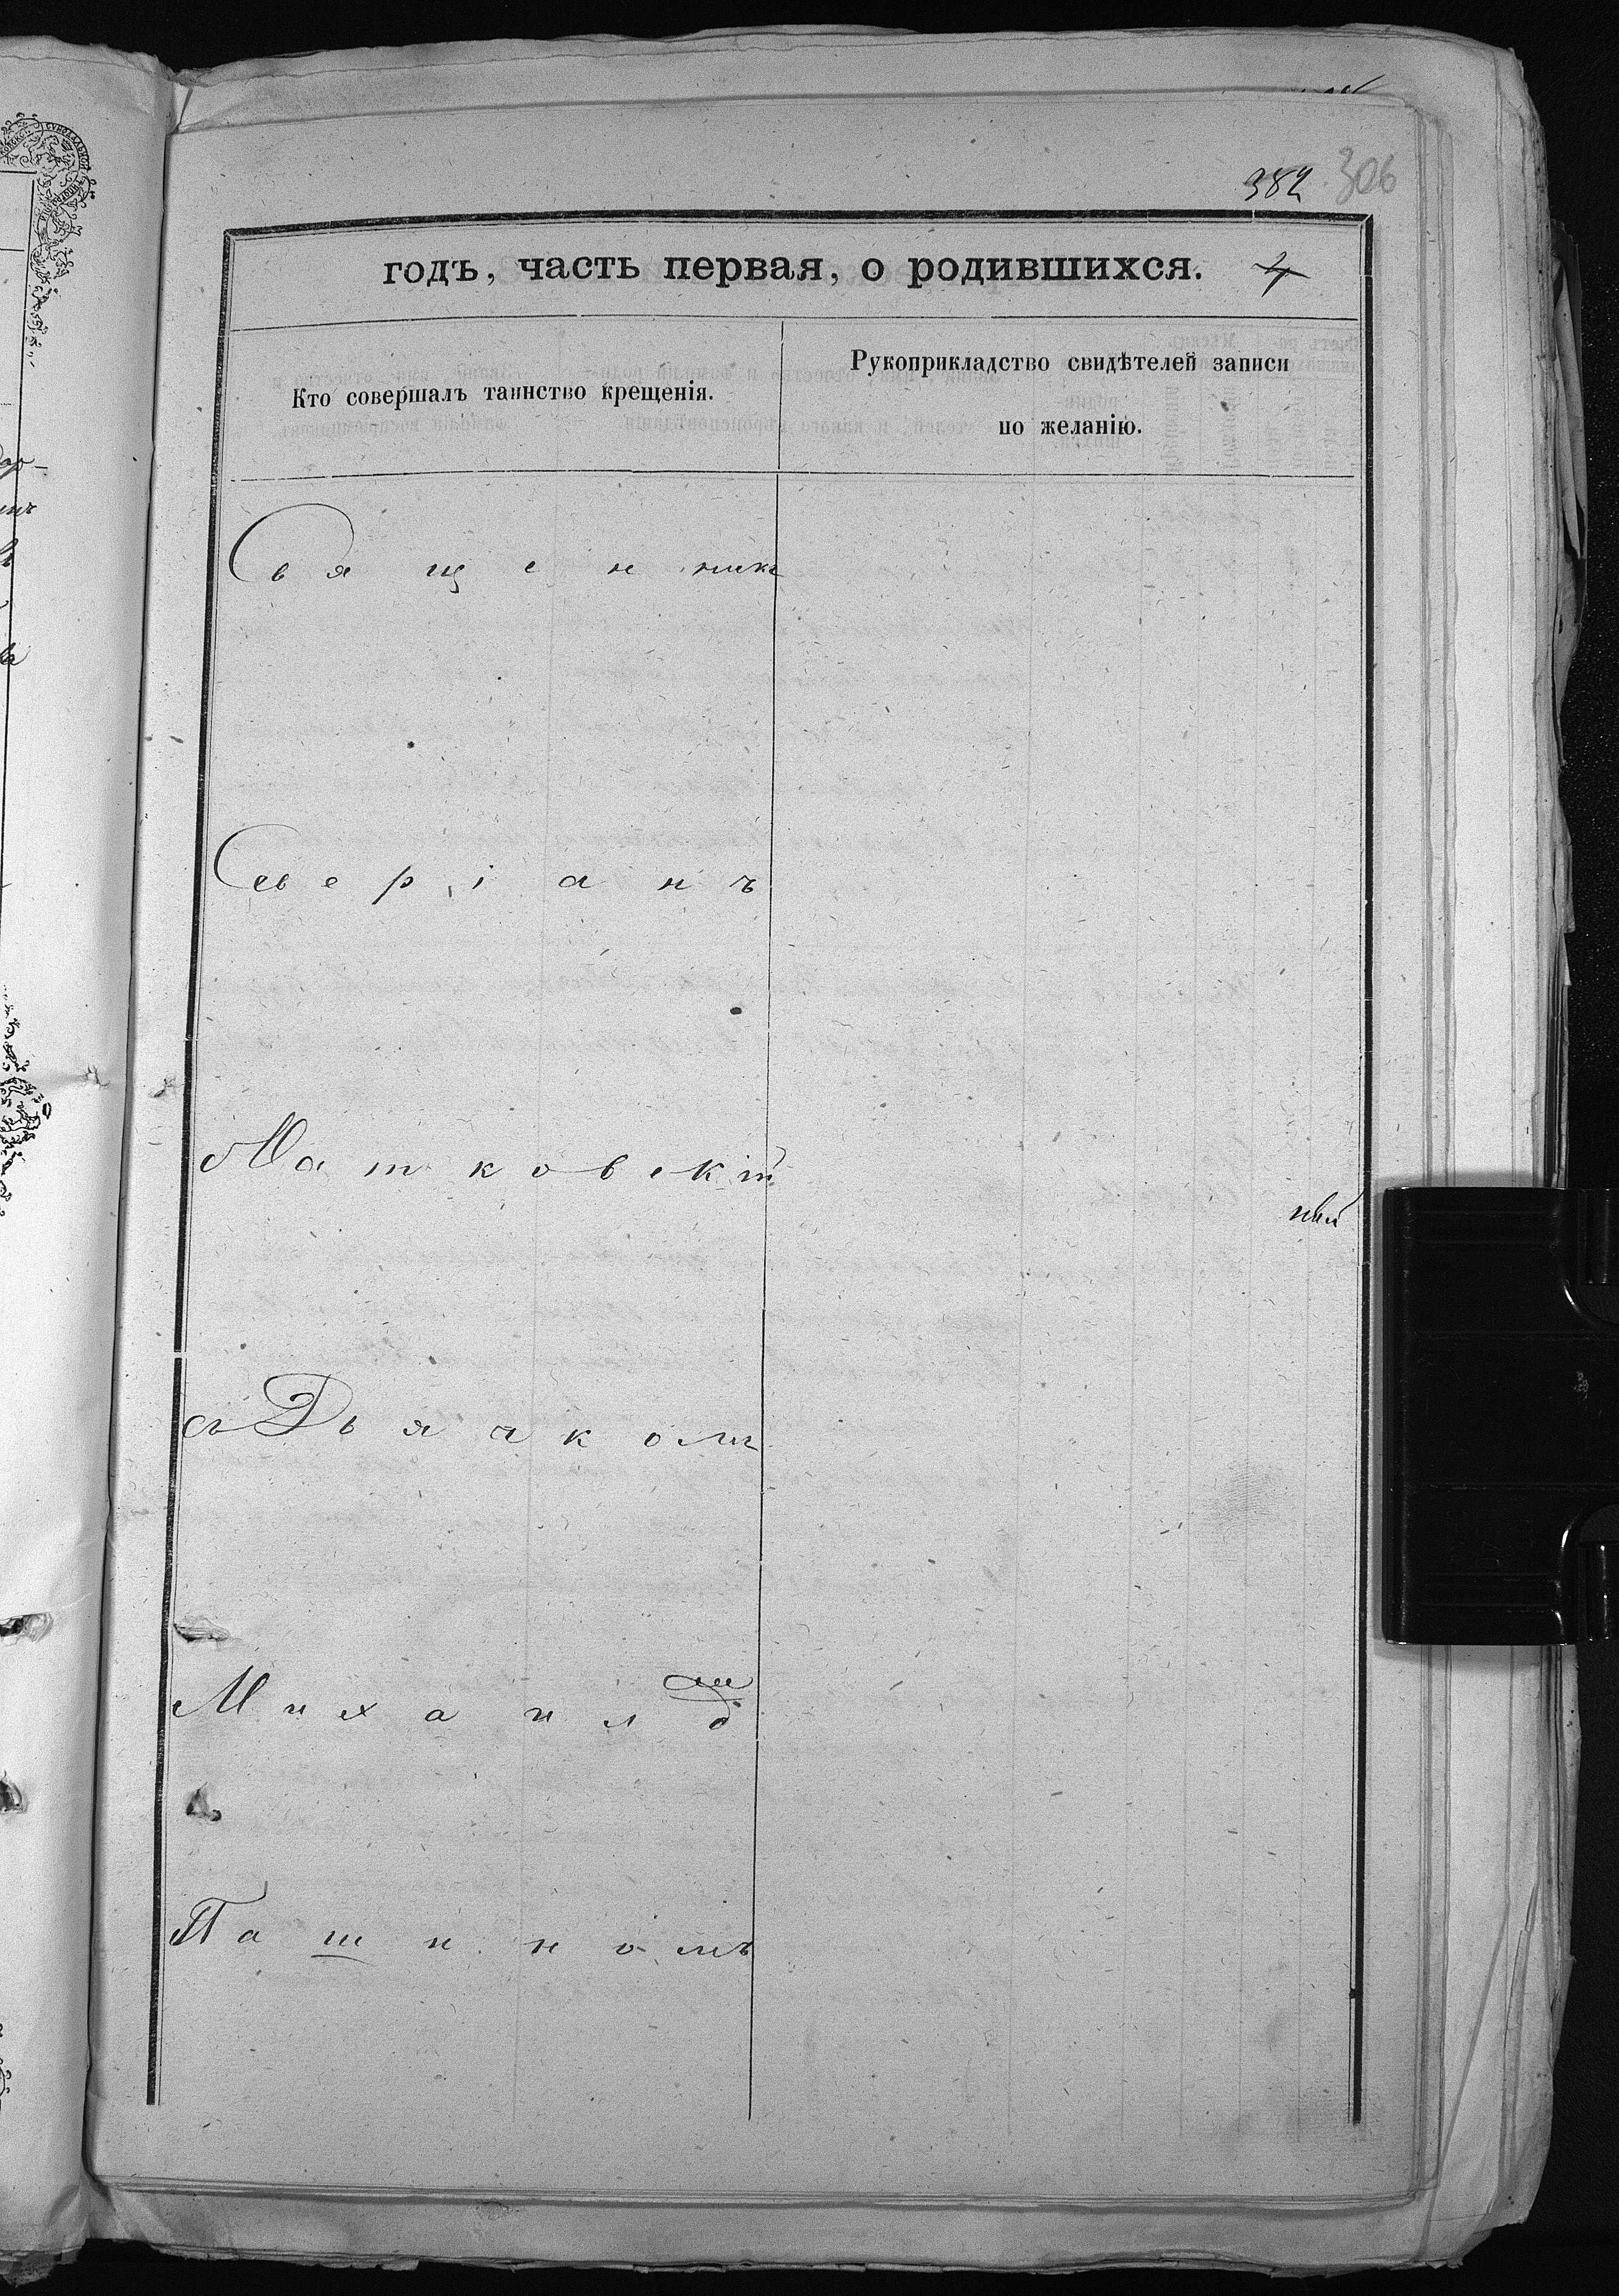 382 306
годъ, часть первая, о родившихся. 4
Кто совершалъ таинство крещенія.
Рукоприкладство свидѣтелей записи
по желанію.
Священникъ
Северіанъ
Матковскій
съ Дьячкомъ
Михаиломъ
Пашиномъ